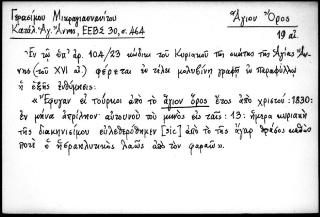 Γερασίμου Μικραγιαννανίτου
Ἅγιον Ὄρος
Κατάλ. Ἁγ. Ἄννης, ΕΕΒΣ 30, σ. 464
19 αἰ.
Ἐν τῷ ὑπ' ἀρ. 104/23 κώδικι τοῦ Κυριακοῦ τῆς σκήτης τῆς Ἁγίας Ἄν-
νης (τοῦ XVI αἰ.) φέρεται ἐν τέλει μολυβίνῃ γραφῇ ἐν παραφύλλῳ
ἡ ἑξῆς ἐνθύμησις:
« Ἔφυγαν οἱ τοῦρκοι ἀπὸ τὸ ἅγιον ὄρος ἔτος ἀπὸ χριστοῦ: 1830:
ἐν μηνὶ ἀπριλίου: αὐτουνοῦ τοῦ μηνὸς εἰς ταῖς: 13: ἡμέρα κυριακὴ
τῆς διακηνισίμου εὐλεθερόθηκεν [sic] ἀπὸ τὸ τῆς ἄγαρ θράσος καθὼς
ποτὲ ὁ ἠσραηλιτικὸς λαὸς ἀπὸ τὸν φαραώ».